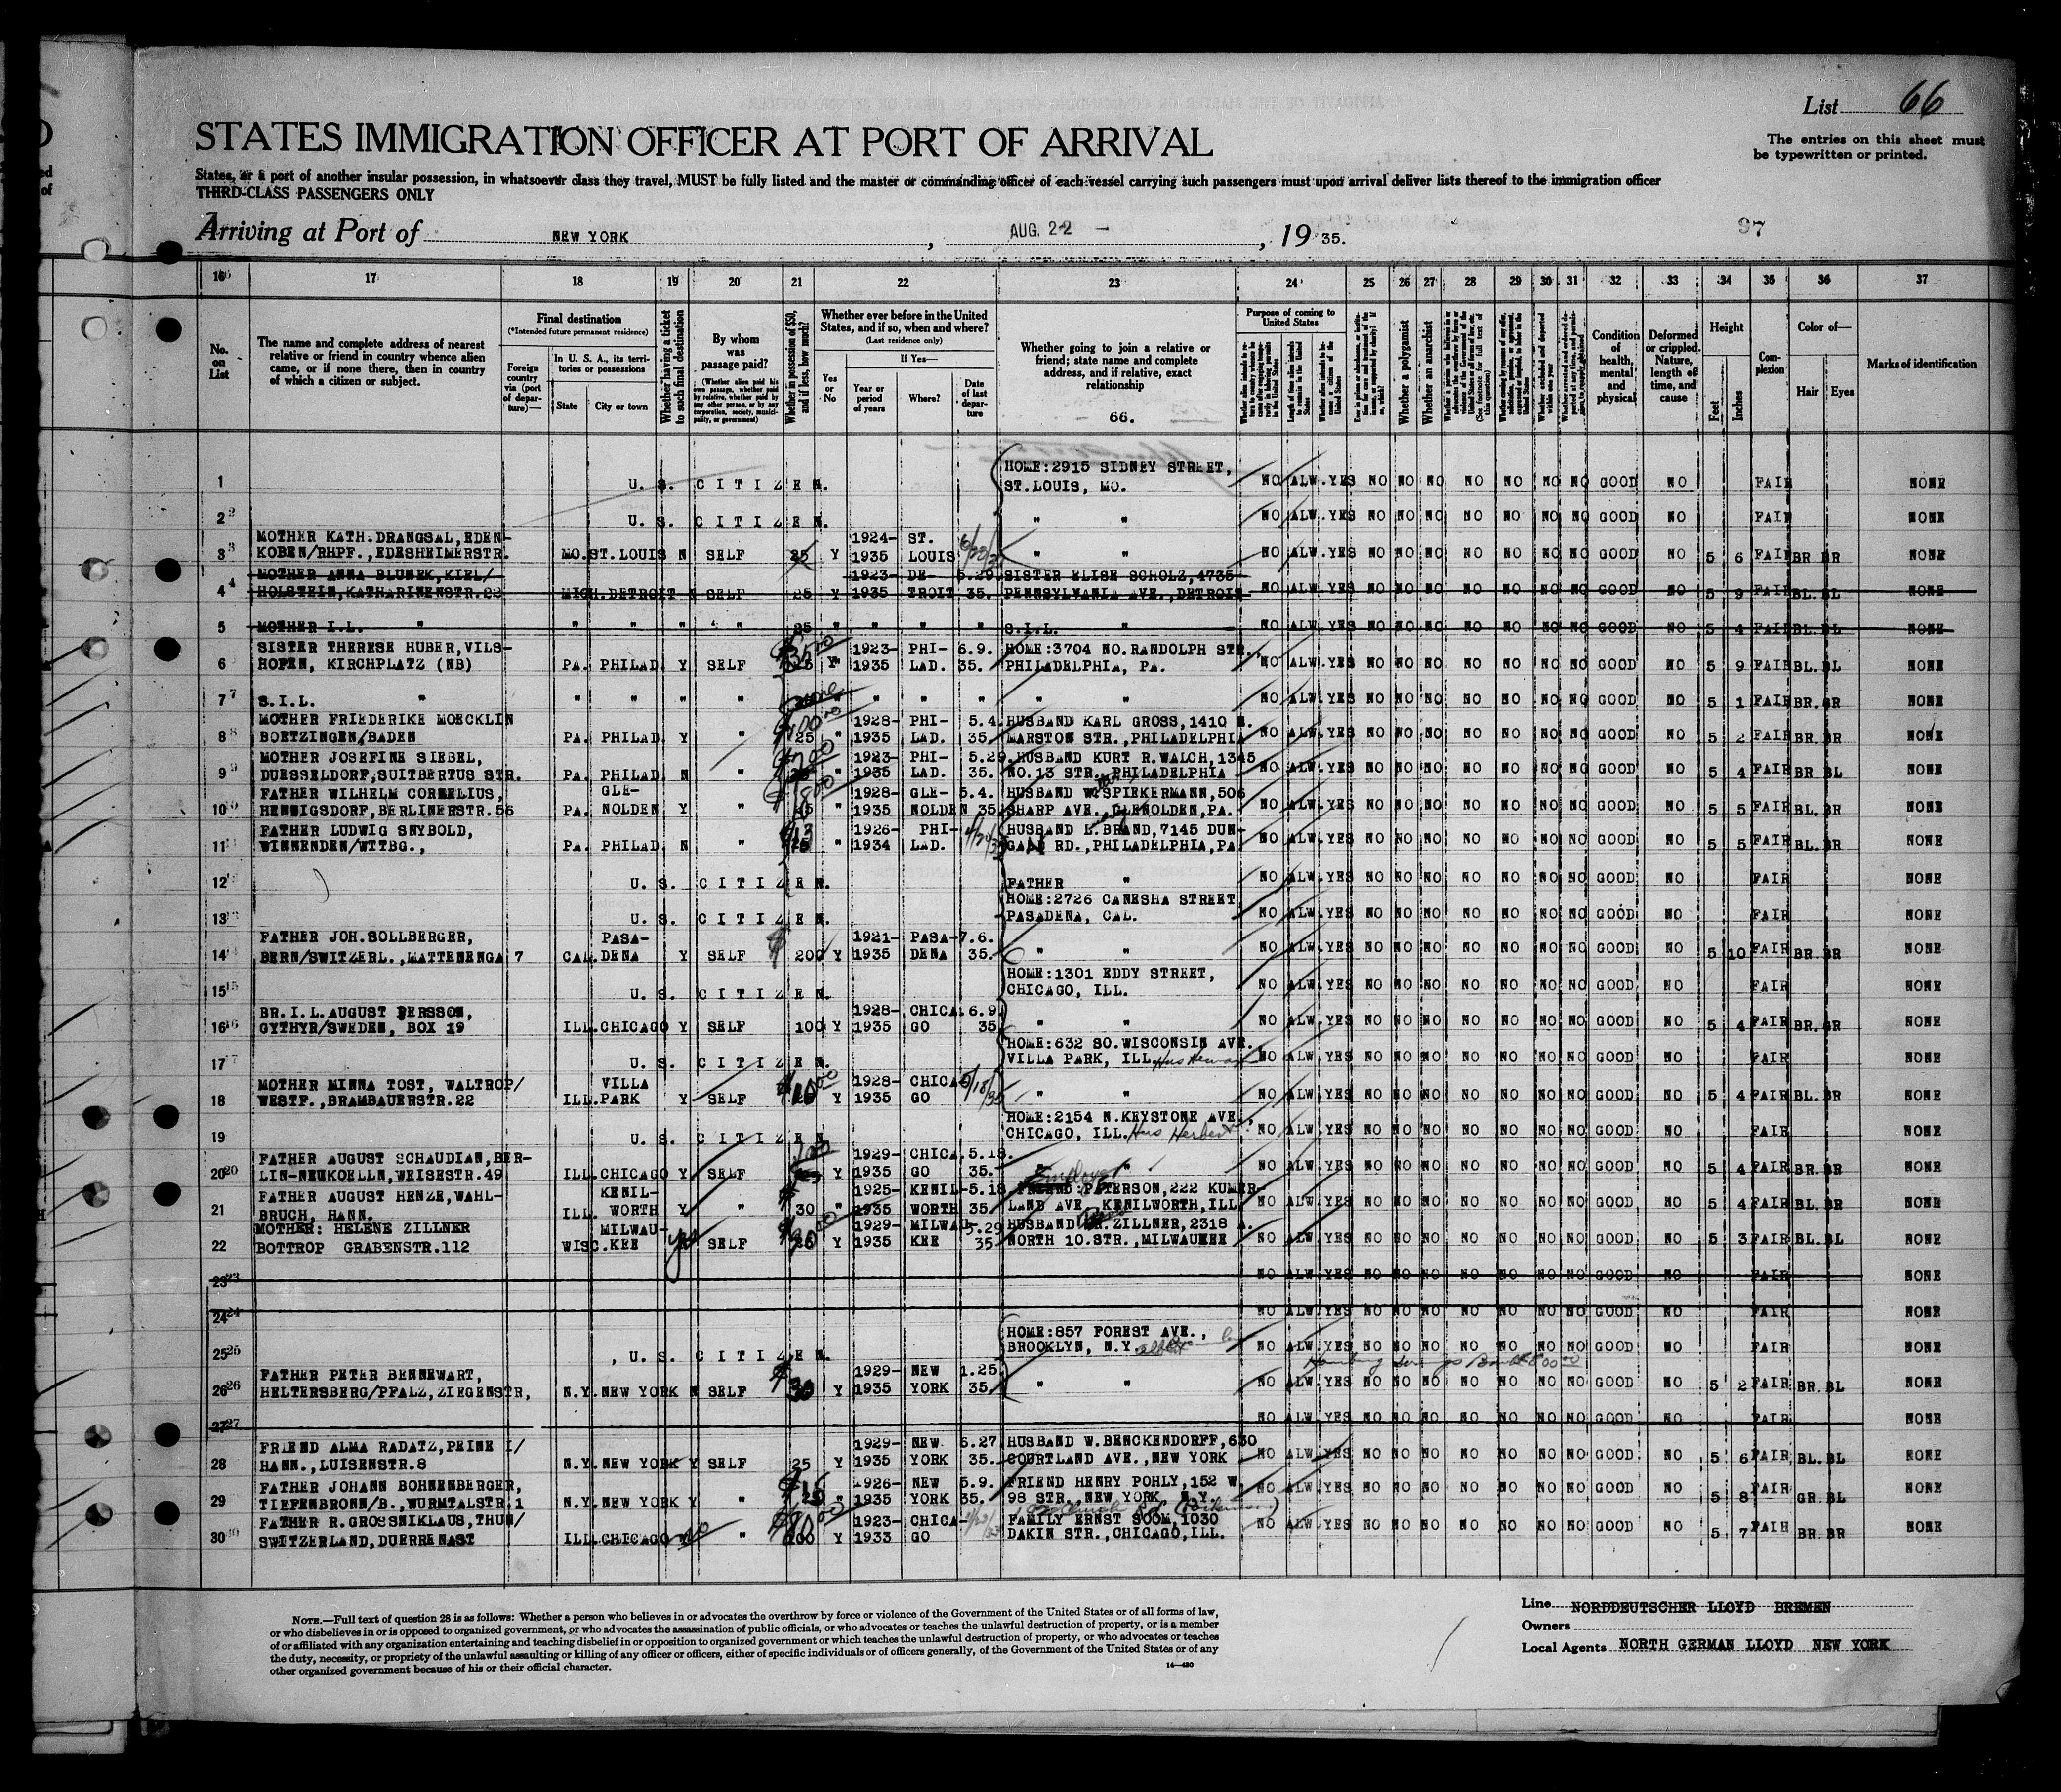 List 66
The entries on this sheet must
be typewritten or printed.
STATES IMMIGRATION OFFICER AT PORT OF ARRIVAL
States, or a port of another insular possession, in whatsoever class they travel, MUST be fully listed and the master or commanding officer of each vessel carrying such passengers must upon arrival deliver lists thereof to the immigration officer
THIRD-CLASS PASSENGERS ONLY
Arriving at Port of NEW YORK, AUG. 22 -, 19 35.
97
16 17 18 19 20 21 22 23 24 25 26 27 28 29 30 31 32 33 34 35 36 37
No. on List
The name and complete address of nearest
relative or friend in country whence alien
came, or if none there, then in country
of which a citizen or subject.
Final destination
(*Intended future permanent residence)
Foreign country via (port of departure)—
In U. S. A., its territories or possessions
State City or town
Whether having a ticket to such final destination
By whom was passage paid?
Whether in possession of $50, and if less, how much?
Whether ever before in the United
States, and if so, when and where?
(Last residence only)
Yes or No
If Yes—
Year or period of years
Where?
Date of last departure
Whether going to join a relative or
friend; state name and complete
address, and if relative, exact
relationship
66.
Purpose of coming to United States
Whether a polygamist
Whether an anarchist
Condition of health, mental and physical
Deformed or crippled. Nature, length of time, and cause
Height
Feet Inches
Complexion
Color of—
Hair Eyes
Marks of identification
1 U. S. CITIZEN. HOME:2915 SIDNEY STREET, ST.LOUIS, MO. NO ALW. YES NO NO NO NO NO NO NO GOOD NO FAIR NONE
2 U. S. CITIZEN. " " NO ALW. YES NO NO NO NO NO NO NO GOOD NO FAIR NONE
3 MOTHER KATH.DRANGSAL,EDEN-
KOBEN/RHPF.,EDESHEIMERSTR. MO. ST.LOUIS N SELF 25 Y 1924-1935 ST. LOUIS " " NO ALW. YES NO NO NO NO NO NO NO GOOD NO 5 6 FAIR BR BR NONE
4 MOTHER ANNA BLUNEK,KIEL/
HOLSTEIN,KATHARINENSTR.22 MICH. DETROIT N SELF 25 Y 1923-1935 DETROIT 5.29 35. SISTER ELISE SCHOLZ,4735 PENNSYLVANIA AVE.,DETROIT NO ALW. YES NO NO NO NO NO NO NO GOOD NO 5 9 FAIR BL. BL NONE
5 MOTHER I.L. " " " " " " 25 " " " " S.I.L. " NO ALW. YES NO NO NO NO NO NO NO GOOD NO 5 4 FAIR BL. BL NONE
6 SISTER THERESE HUBER,VILS-
HOFEN, KIRCHPLATZ (NB) PA. PHILAD Y SELF Y 1923-1935 PHILAD. 6.9. 35. HOME:3704 NO.RANDOLPH STR., PHILADELPHIA, PA. NO ALW. YES NO NO NO NO NO NO NO GOOD NO 5 9 FAIR BL. BL NONE
7 S.I.L. " " " " " " " " " " " NO ALW. YES NO NO NO NO NO NO NO GOOD NO 5 1 FAIR BR. GR NONE
8 MOTHER FRIEDERIKE MOECKLIN
BOETZINGEN/BADEN PA. PHILAD Y " 25 " 1928-1935 PHILAD. 5.4. 35. HUSBAND KARL GROSS,1410 N. MARSTON STR.,PHILADELPHIA NO ALW. YES NO NO NO NO NO NO NO GOOD NO 5 2 FAIR BR. BR NONE
9 MOTHER JOSEFINE SIEBEL,
DUESSELDORF,SUITBERTUS STR. PA. PHILAD N " " 1923-1935 PHILAD. 5.29. 35. HUSBAND KURT R.WALCH,1345 NO.13 STR. PHILADELPHIA NO ALW. YES NO NO NO NO NO NO NO GOOD NO 5 4 FAIR BR BL NONE
10 FATHER WILHELM CORNELIUS,
HENNIGSDORF,BERLINERSTR.56 PA. GLENOLDEN Y " " 1928-1935 GLENOLDEN 5.4. 35 HUSBAND W.SPIEKERMANN,506 SHARP AVE., GLENOLDEN,PA. NO ALW. YES NO NO NO NO NO NO NO GOOD NO 5 5 FAIR BL. BR NONE
11 FATHER LUDWIG SNYBOLD,
WINNENDEN/WTTBG., PA. PHILAD N " " 1926-1934 PHILAD. HUSBAND E.BRAND,7145 DUN- RD.,PHILADELPHIA,PA NO ALW. YES NO NO NO NO NO NO NO GOOD NO 5 5 FAIR BL. BR NONE
12 U. S. CITIZEN. FATHER " NO ALW. YES NO NO NO NO NO NO NO GOOD NO FAIR NONE
13 U. S. CITIZEN. HOME:2726 CANESHA STREET PASADENA, CAL. NO ALW. YES NO NO NO NO NO NO NO GOOD NO FAIR NONE
14 FATHER JOH.SOLLBERGER,
BERN/SWITZERL.,MATTENENGA 7 CAL. PASADENA Y SELF $ 200 Y 1921-1935 PASADENA 7.6. 35. " " NO ALW. YES NO NO NO NO NO NO NO GOOD NO 5 10 FAIR BR. BR NONE
15 U. S. CITIZEN. HOME:1301 EDDY STREET, CHICAGO, ILL. NO ALW. YES NO NO NO NO NO NO NO GOOD NO FAIR NONE
16 BR.I.L.AUGUST PERSSON,
GYTHYR/SWEDEN, BOX 19 ILL. CHICAGO Y SELF 100 Y 1928-1935 CHICAGO 6.9. 35 " " NO ALW. YES NO NO NO NO NO NO NO GOOD NO 5 4 FAIR BR. GR NONE
17 U. S. CITIZEN. HOME:632 SO.WISCONSIN AVE., VILLA PARK, ILL. NO ALW. YES NO NO NO NO NO NO NO GOOD NO FAIR NONE
18 MOTHER MINNA TOST, WALTROP/
WESTF.,BRAMBAUERSTR.22 ILL. VILLA PARK Y SELF Y 1928-1935 CHICAGO " " NO ALW. YES NO NO NO NO NO NO NO GOOD NO 5 4 FAIR BL. BR NONE
19 U. S. CITIZEN HOME:2154 N.KEYSTONE AVE., CHICAGO, ILL. Hus Herbert NO ALW. YES NO NO NO NO NO NO NO GOOD NO FAIR NONE
20 FATHER AUGUST SCHAUDIAN,BER-
LIN-NEUKOELLN,WEISESTR.49 ILL. CHICAGO Y SELF Y 1929-1935 CHICAGO 5.18. 35. " NO ALW. YES NO NO NO NO NO NO NO GOOD NO 5 4 FAIR BR. BR NONE
21 FATHER AUGUST HENZE,WAHL-
BRUCH, HANN. ILL. KENILWORTH Y " 30 " 1925-1935 KENILWORTH 5.18 35. Employer FRIEND PETERSON,222 KUMER- LAND AVE., KENILWORTH,ILL NO ALW. YES NO NO NO NO NO NO NO GOOD NO 5 4 FAIR BL. BR NONE
22 MOTHER: HELENE ZILLNER
BOTTROP GRABENSTR.112 WISC. MILWAUKEE yes SELF Y 1929-1935 MILWAUKEE 5.29 35 HUSBAND ZILLNER,2318 A. NORTH 10.STR.,MILWAUKEE NO ALW. YES NO NO NO NO NO NO NO GOOD NO 5 3 FAIR BL. BL NONE
23 NO ALW. YES NO NO NO NO NO NO NO GOOD NO FAIR NONE
24 NO ALW. YES NO NO NO NO NO NO NO GOOD NO FAIR NONE
25 U. S. CITIZEN. HOME:857 FOREST AVE., BROOKLYN, N.Y NO ALW. YES NO NO NO NO NO NO NO GOOD NO FAIR NONE
26 FATHER PETER BENNEWART,
HELTERSBERG/PFALZ,ZIEGENSTR, N.Y. NEW YORK N SELF $ 30 Y 1929-1935 NEW YORK 1.25 35. " " NO ALW. YES NO NO NO NO NO NO NO GOOD NO 5 2 FAIR BR. BL NONE
27 NO ALW. YES NO NO NO NO NO NO NO GOOD NO FAIR NONE
28 FRIEND ALMA RADATZ,PEINE I/
HANN.,LUISENSTR.8 N.Y. NEW YORK Y SELF 25 Y 1929-1935 NEW YORK 6.27 35. HUSBAND W.BENCKENDORFF,630 COURTLAND AVE.,NEW YORK NO ALW. YES NO NO NO NO NO NO NO GOOD NO 5 6 FAIR BL. BL NONE
29 FATHER JOHANN BOHNENBERGER,
TIEFENBRONN/B.,WURMTALSTR.1 N.Y. NEW YORK Y " " 1926-1935 NEW YORK 5.9. 35. FRIEND HENRY POHLY,152 W. 98 STR.,NEW YORK, N.Y. NO ALW. YES NO NO NO NO NO NO NO GOOD NO 5 8 FAIR GR. BL NONE
30 FATHER R.GROSSNIKLAUS,THUN/
SWITZERLAND,DUERRENAST ILL. CHICAGO no " Y 1923-1933 CHICAGO FAMILY ERNST SOOM,1030 DAKIN STR.,CHICAGO,ILL. NO ALW. YES NO NO NO NO NO NO NO GOOD NO 5 7 FAIR BR. BR NONE
NOTE.—Full text of question 28 is as follows: Whether a person who believes in or advocates the overthrow by force or violence of the Government of the United States or of all forms of law,
or who disbelieves in or is opposed to organized government, or who advocates the assassination of public officials, or who advocates or teaches the unlawful destruction of property, or is a member
of or affiliated with any organization entertaining and teaching disbelief in or opposition to organized government or which teaches the unlawful destruction of property, or who advocates or teaches
the duty, necessity, or propriety of the unlawful assaulting or killing of any officer or officers, either of specific individuals or of officers generally, of the Government of the United States or of any
other organized government because of his or their official character.
14—430
Line NORDDEUTSCHER LLOYD BREMEN
Owners
Local Agents NORTH GERMAN LLOYD NEW YORK